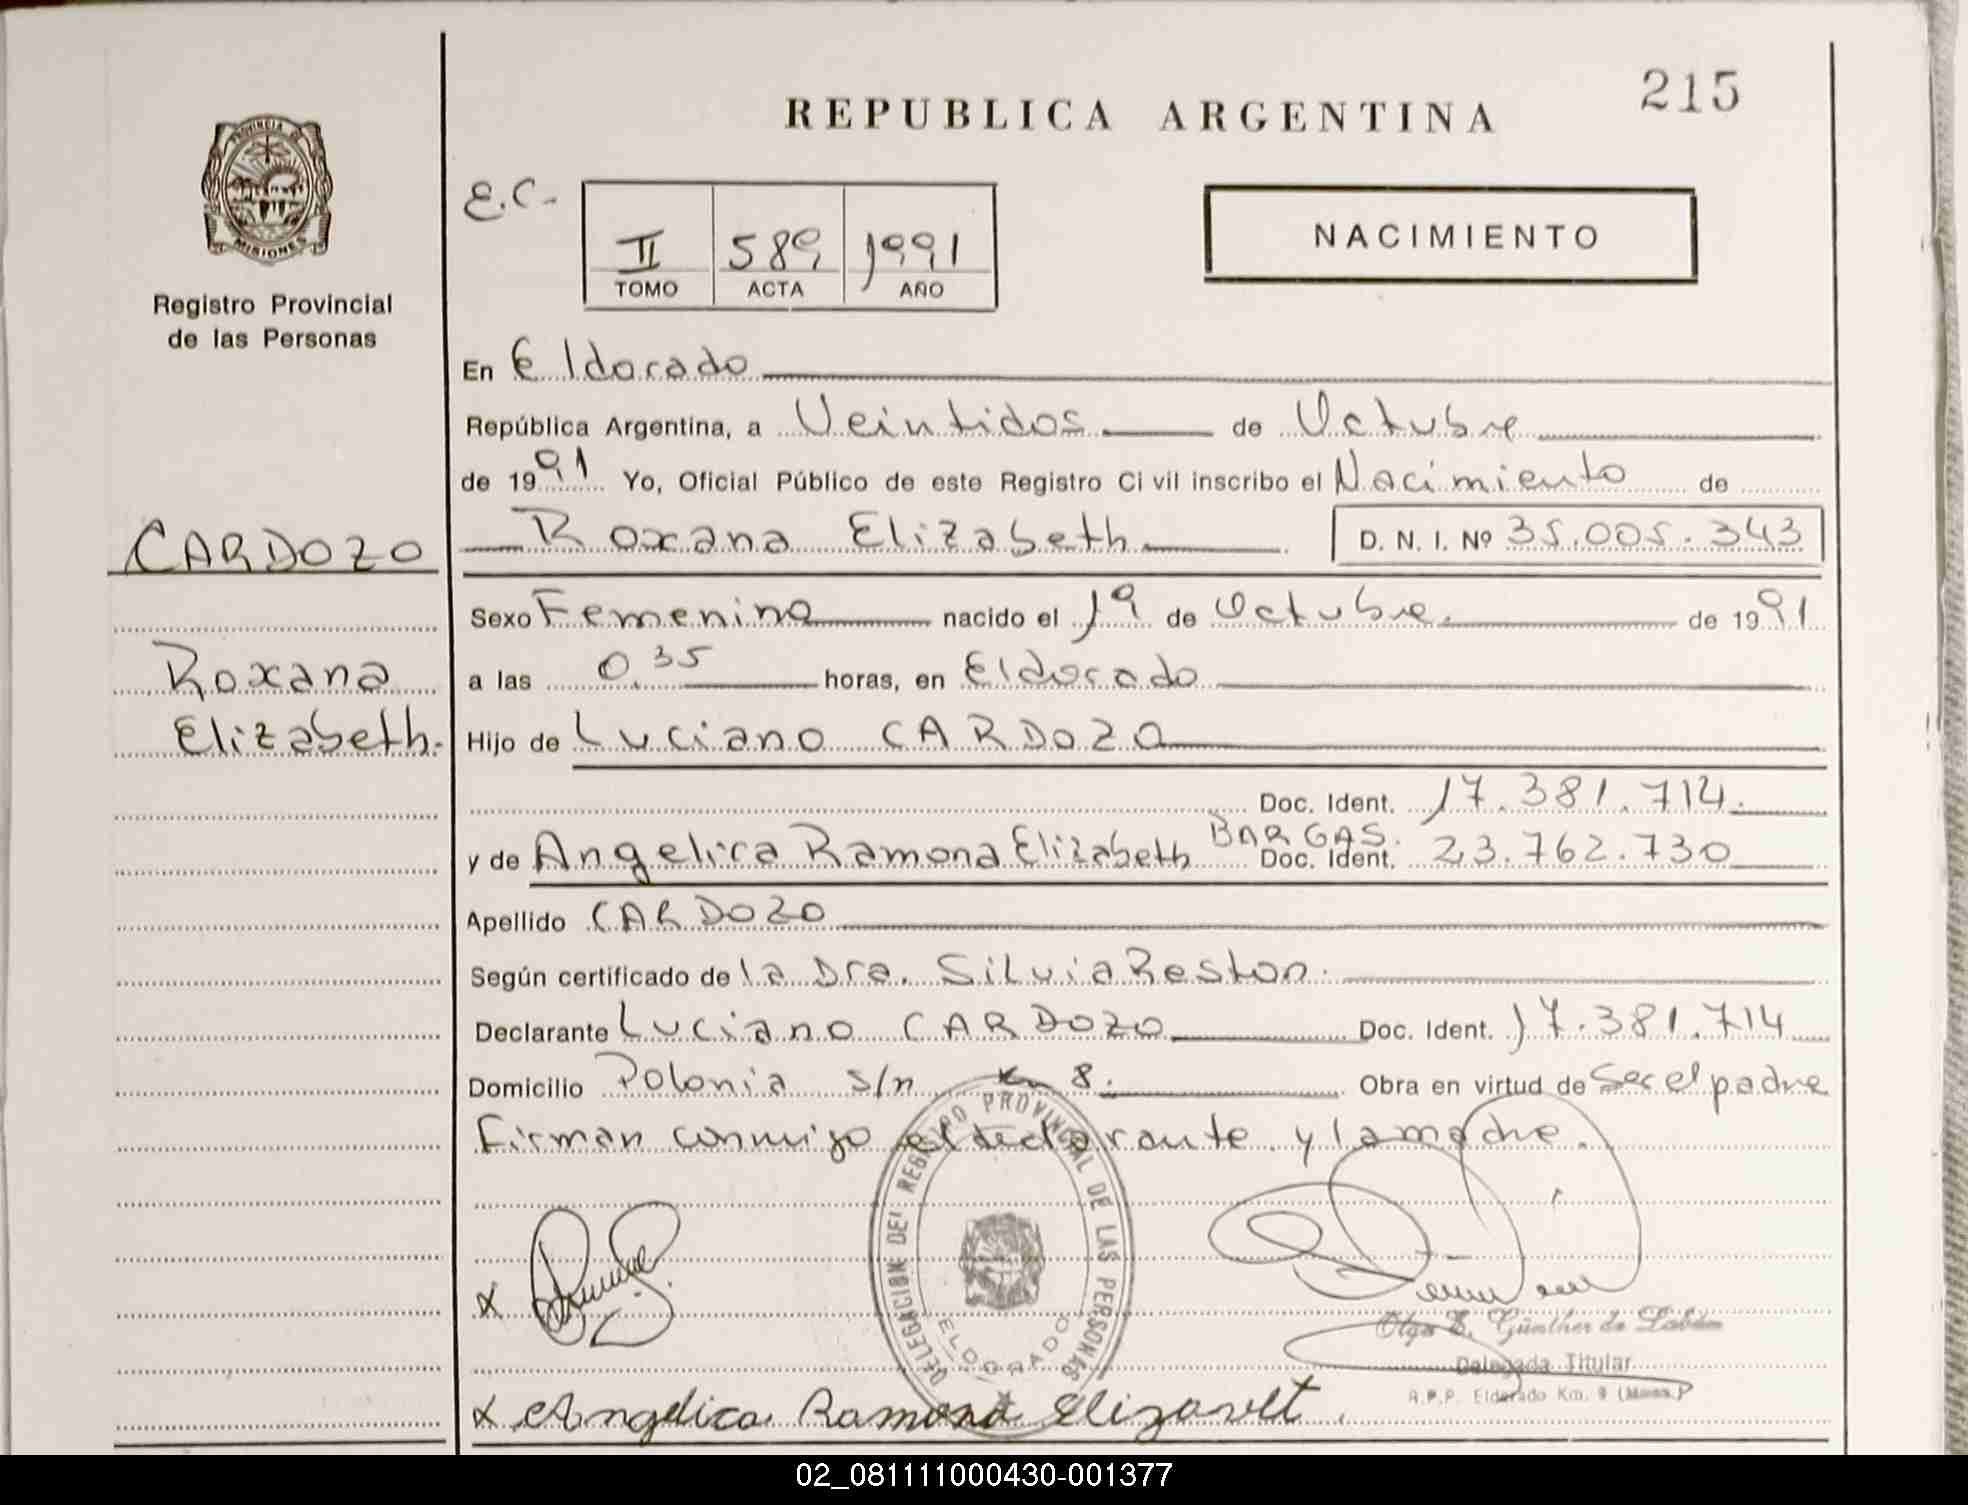 215
REPUBLICA ARGENTINA
PROVINCIA DE
MISIONES
Registro Provincial
de las Personas
E.C.-
II 589 1991
TOMO ACTA AÑO
NACIMIENTO
En Eldorado
República Argentina, a Veintidos de Octubre
de 1991 Yo, Oficial Público de este Registro Civil inscribo el Nacimiento de
CARDOZO
Roxana Elizabeth D. N. I. Nº 35.005.343
Sexo Femenino nacido el 1º de Octubre. de 1991
Roxana
a las 0.35 horas, en Eldorado
Elizabeth.
Hijo de Luciano CARDOZO
Doc. Ident. 17.381.714.
y de Angelica Ramona Elizabeth BARGAS. Doc. Ident. 23.762.730
Apellido CARDOZO
Según certificado de la Dra. Silvia Reston.
Declarante Luciano CARDOZO Doc. Ident. 17.381.714
Domicilio Polonia s/n km 8. Obra en virtud de Ser el padre
Firman conmigo el declarante y la madre.
DELEGACION DEL REGISTRO PROVINCIAL DE LAS PERSONAS
ELDORADO
x
Olga E. Günther de
Delegada Titular
R.P.P. Eldorado Km. 9 (Mnes.)
x Angelica Ramona Elizavet.
02_081111000430-001377